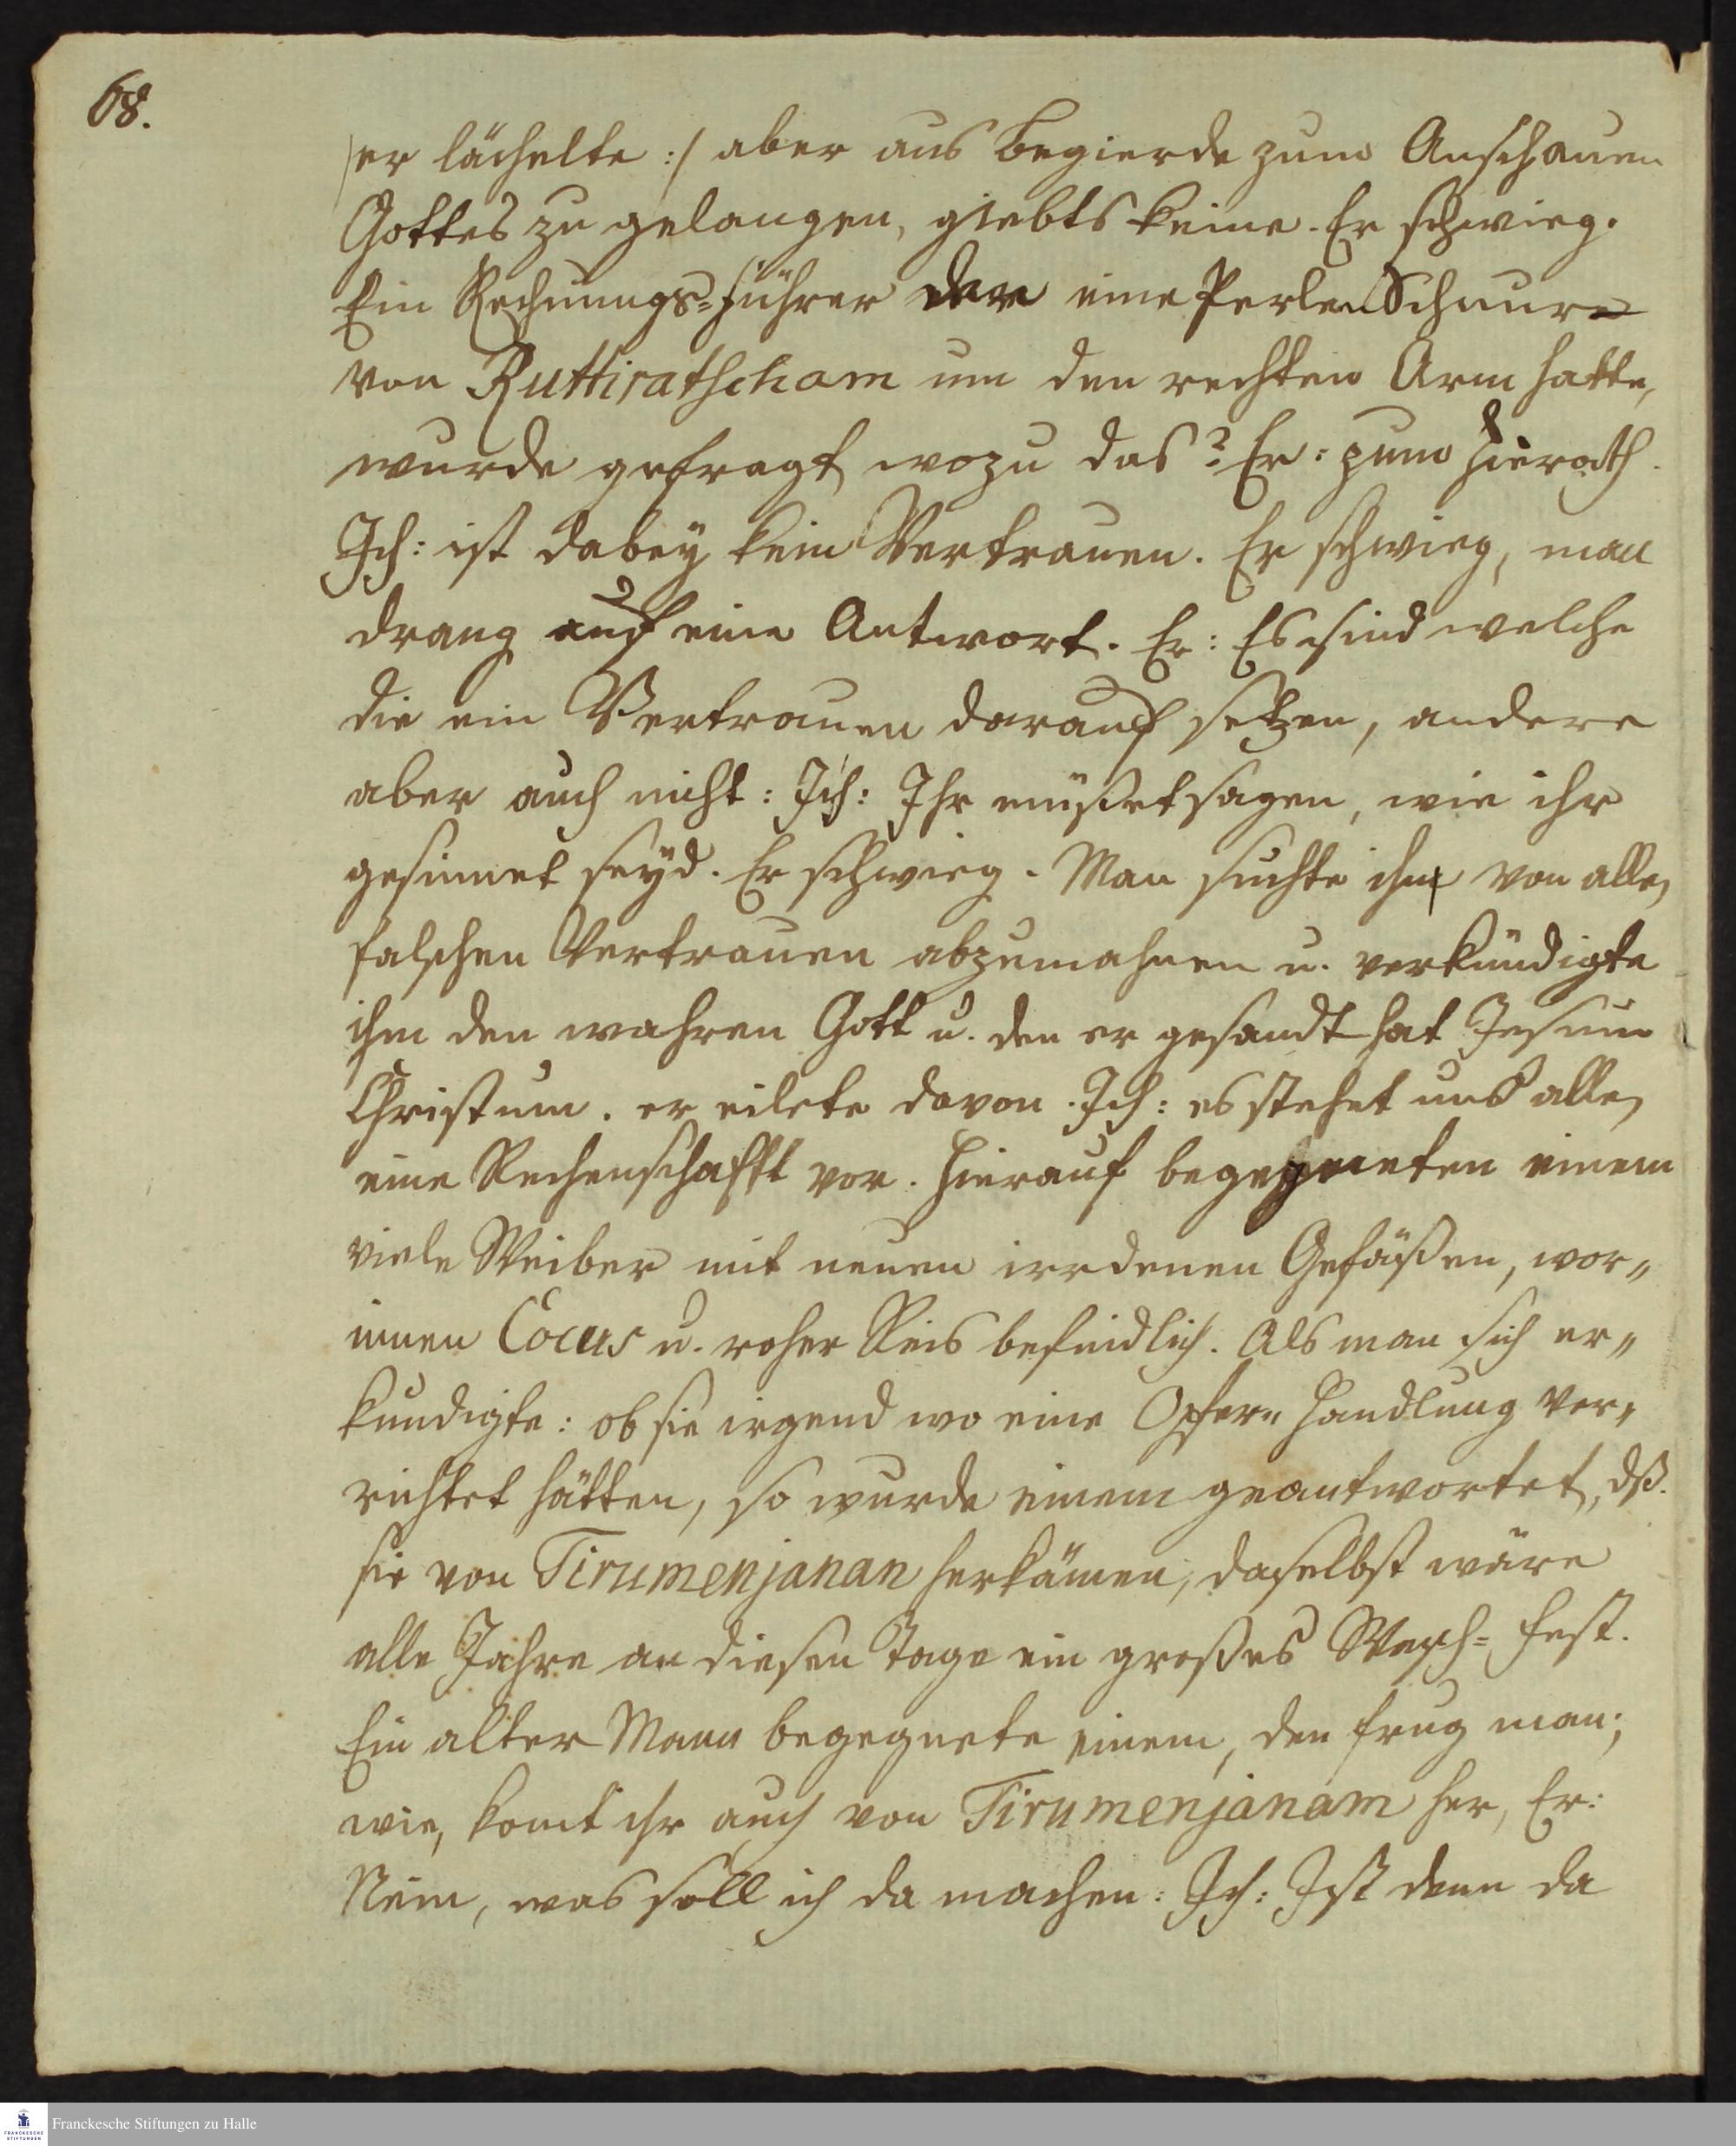 68.
/er lächelte :/ aber aus Begierde zum Anschauen
Gottes zu gelangen, giebts keine. Er schwieg.
Ein Rechnungs-Führer der eine PerlenSchnur
von Ruttiratscham um den rechten Arm hatte,
wurde gefragt wozu das? Er: zum Zierath.
Ich: ist dabey kein Vertrauen. Er schwieg, man
drang auf eine Antwort. Er: Es sind welche
die ein Vertrauen darauf setzen, andere
aber auch nicht: Ich: Ihr müßet sagen, wie ihr
gesinnet seyd. Er schwieg. Man suchte ihn von allen
falschen Vertrauen abzumahnen u. verkündigte
ihm den wahren Gott u. den er gesandt hat Jesum
Christum. er eilete davon. Ich: es stehet uns allen
eine Rechenschafft vor. Hierauf begegneten einem
viele Weiber mit neuen irrdenen Gefäßen, wor„
innen Cocus u. roher Reis befindlich. Als man sich er„
kundigte: ob sie irgend wo eine Opfer„ Handlung ver„
richtet hätten, so wurde einem geantwortet, dß.
sie von Tirumenjanan herkämen, daselbst wäre
alle Jahre an diesen Tage ein großes Wasch= Fest.
Ein alter Mann begegnete einem, den frug man;
wie, komt ihr auch von Tirumenjanam her, Er:
Nein, was soll ich da machen: Ich: Ist denn da
Franckesche Stiftungen zu Halle
FRANCKESCHE
STIFTUNGEN